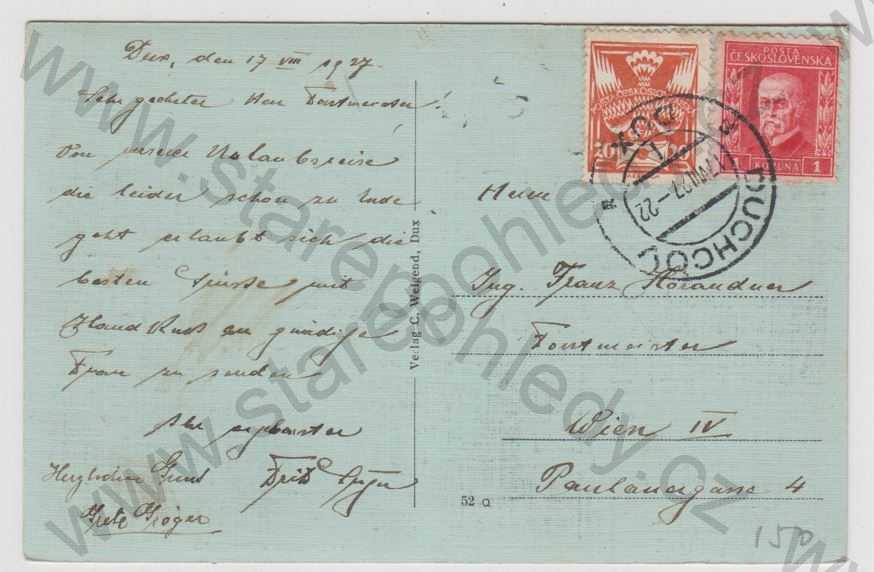 Dux, den 17 VIII 1927.
Sehr geehrter Herr Forstmeister!
Von unserer Urlaubsreise
die leider schon zu Ende
geht erlaubt sich die
besten Grüsse mit
Handkuss an gnädige
Frau zu senden
Ihr ergebenster
Fritz
Herzlichen Gruss
Grete Gröger
Verlag C. Weigend, Dux
52 Q
POSTA
ČESKOSLOVENSKÁ
KORUNA 1
ČESKOSLOVENSKÁ
20
DUX
DUCHCOV
17.VIII.27-22
Herrn
Ing. Franz Horandner
Forstmeister
Wien IV
Paulanergasse 4
150
www.starepohledy.cz